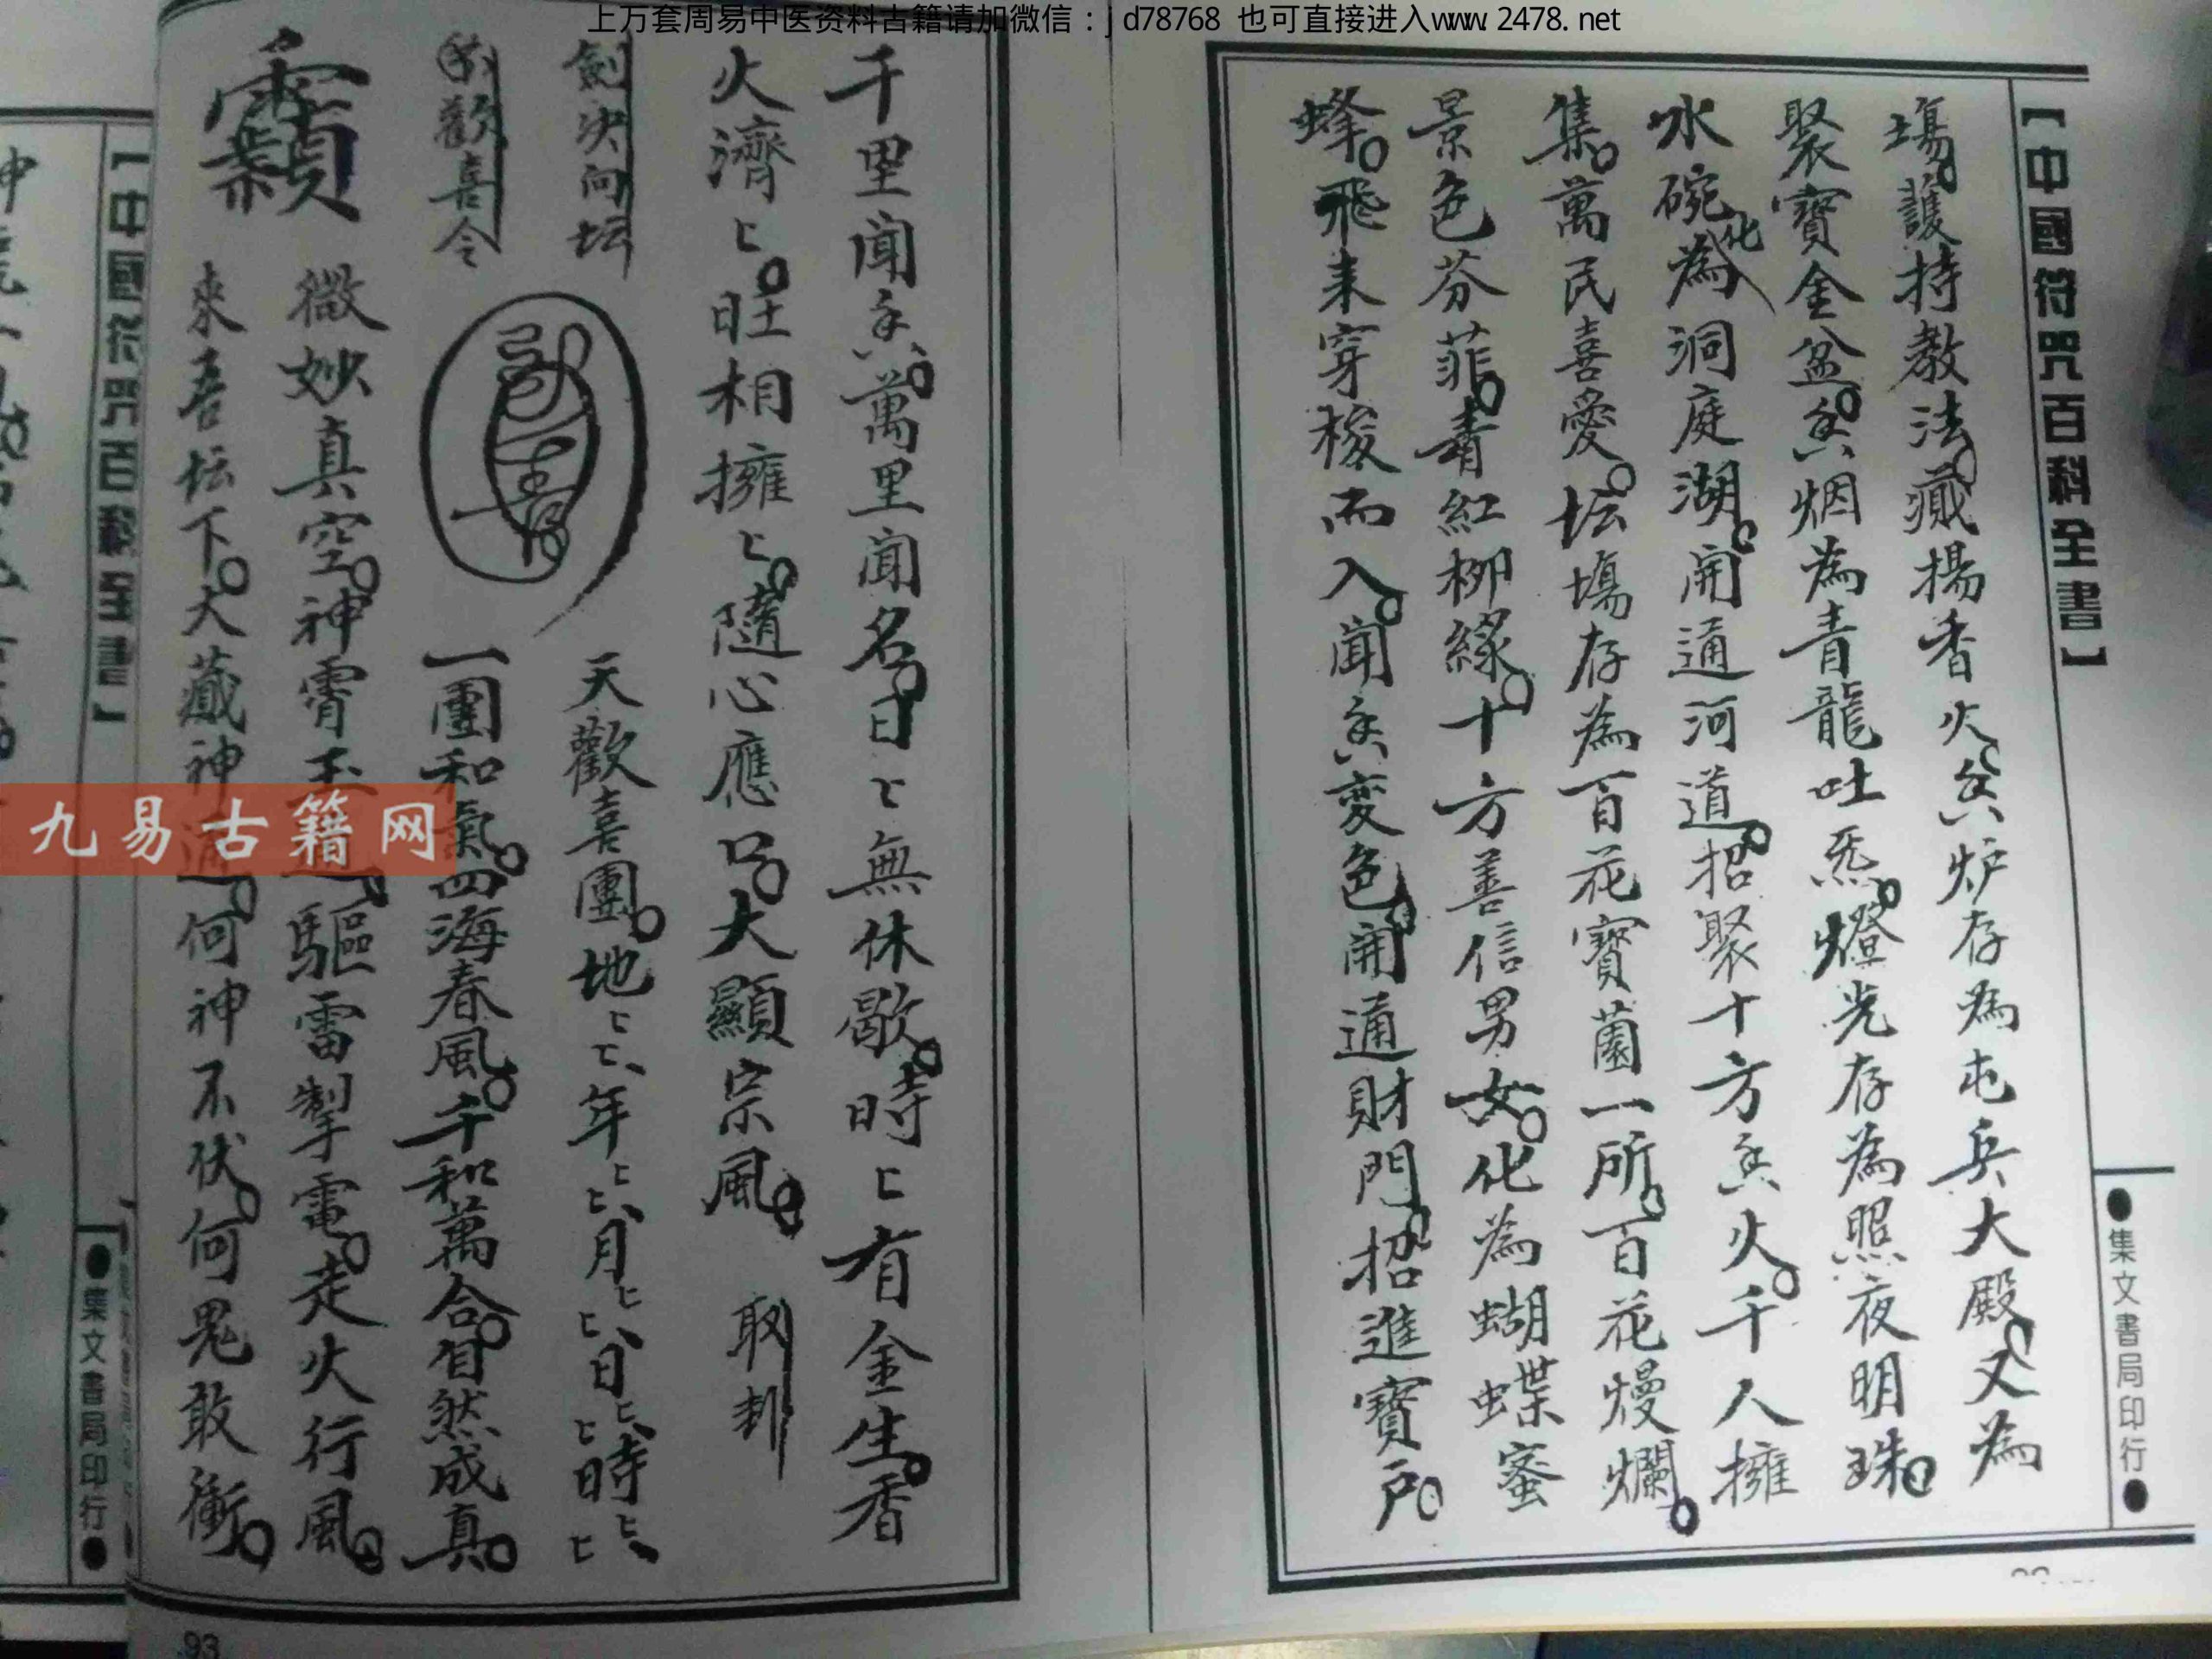 上万套周易中医资料古籍请加微信：jd78768 也可直接进入www.2478.net
【中國符咒百科全書】
●集文書局印行●
塲。護持教法。藏揚香火。炉存為屯兵大殿。又為
聚寶金盆。烟為青龍吐炁。燈光存為照夜明珠。
水碗化為洞庭湖。開通河道。招聚十方火。千人擁
集。萬民喜愛。坛塲存為百花寶薗一所。百花熳爛。
景色芬菲。青紅柳緣。十方善信男女。化為蝴蝶蜜
蜂。飛来穿梭而入。聞変色。開通財門。招進寶戶。
千里聞萬里聞名。日匕無休歇。時匕有金生。香
火濟匕。旺相擁匕。隨心應口。大顯宗風。
劍决向坛
歡喜令
天歡喜團。地匕匕、年匕匕、月匕匕、日匕匕、時匕匕、
一團和氣。四海春風。千和萬合。自然成真。
微妙真空。神霄玉驅雷掣電。走火行風。
來吾坛下。大藏神通。何神不伏。何鬼敢衝。
九易古籍网
【中國符咒百科全書】
●集文書局印行●
93